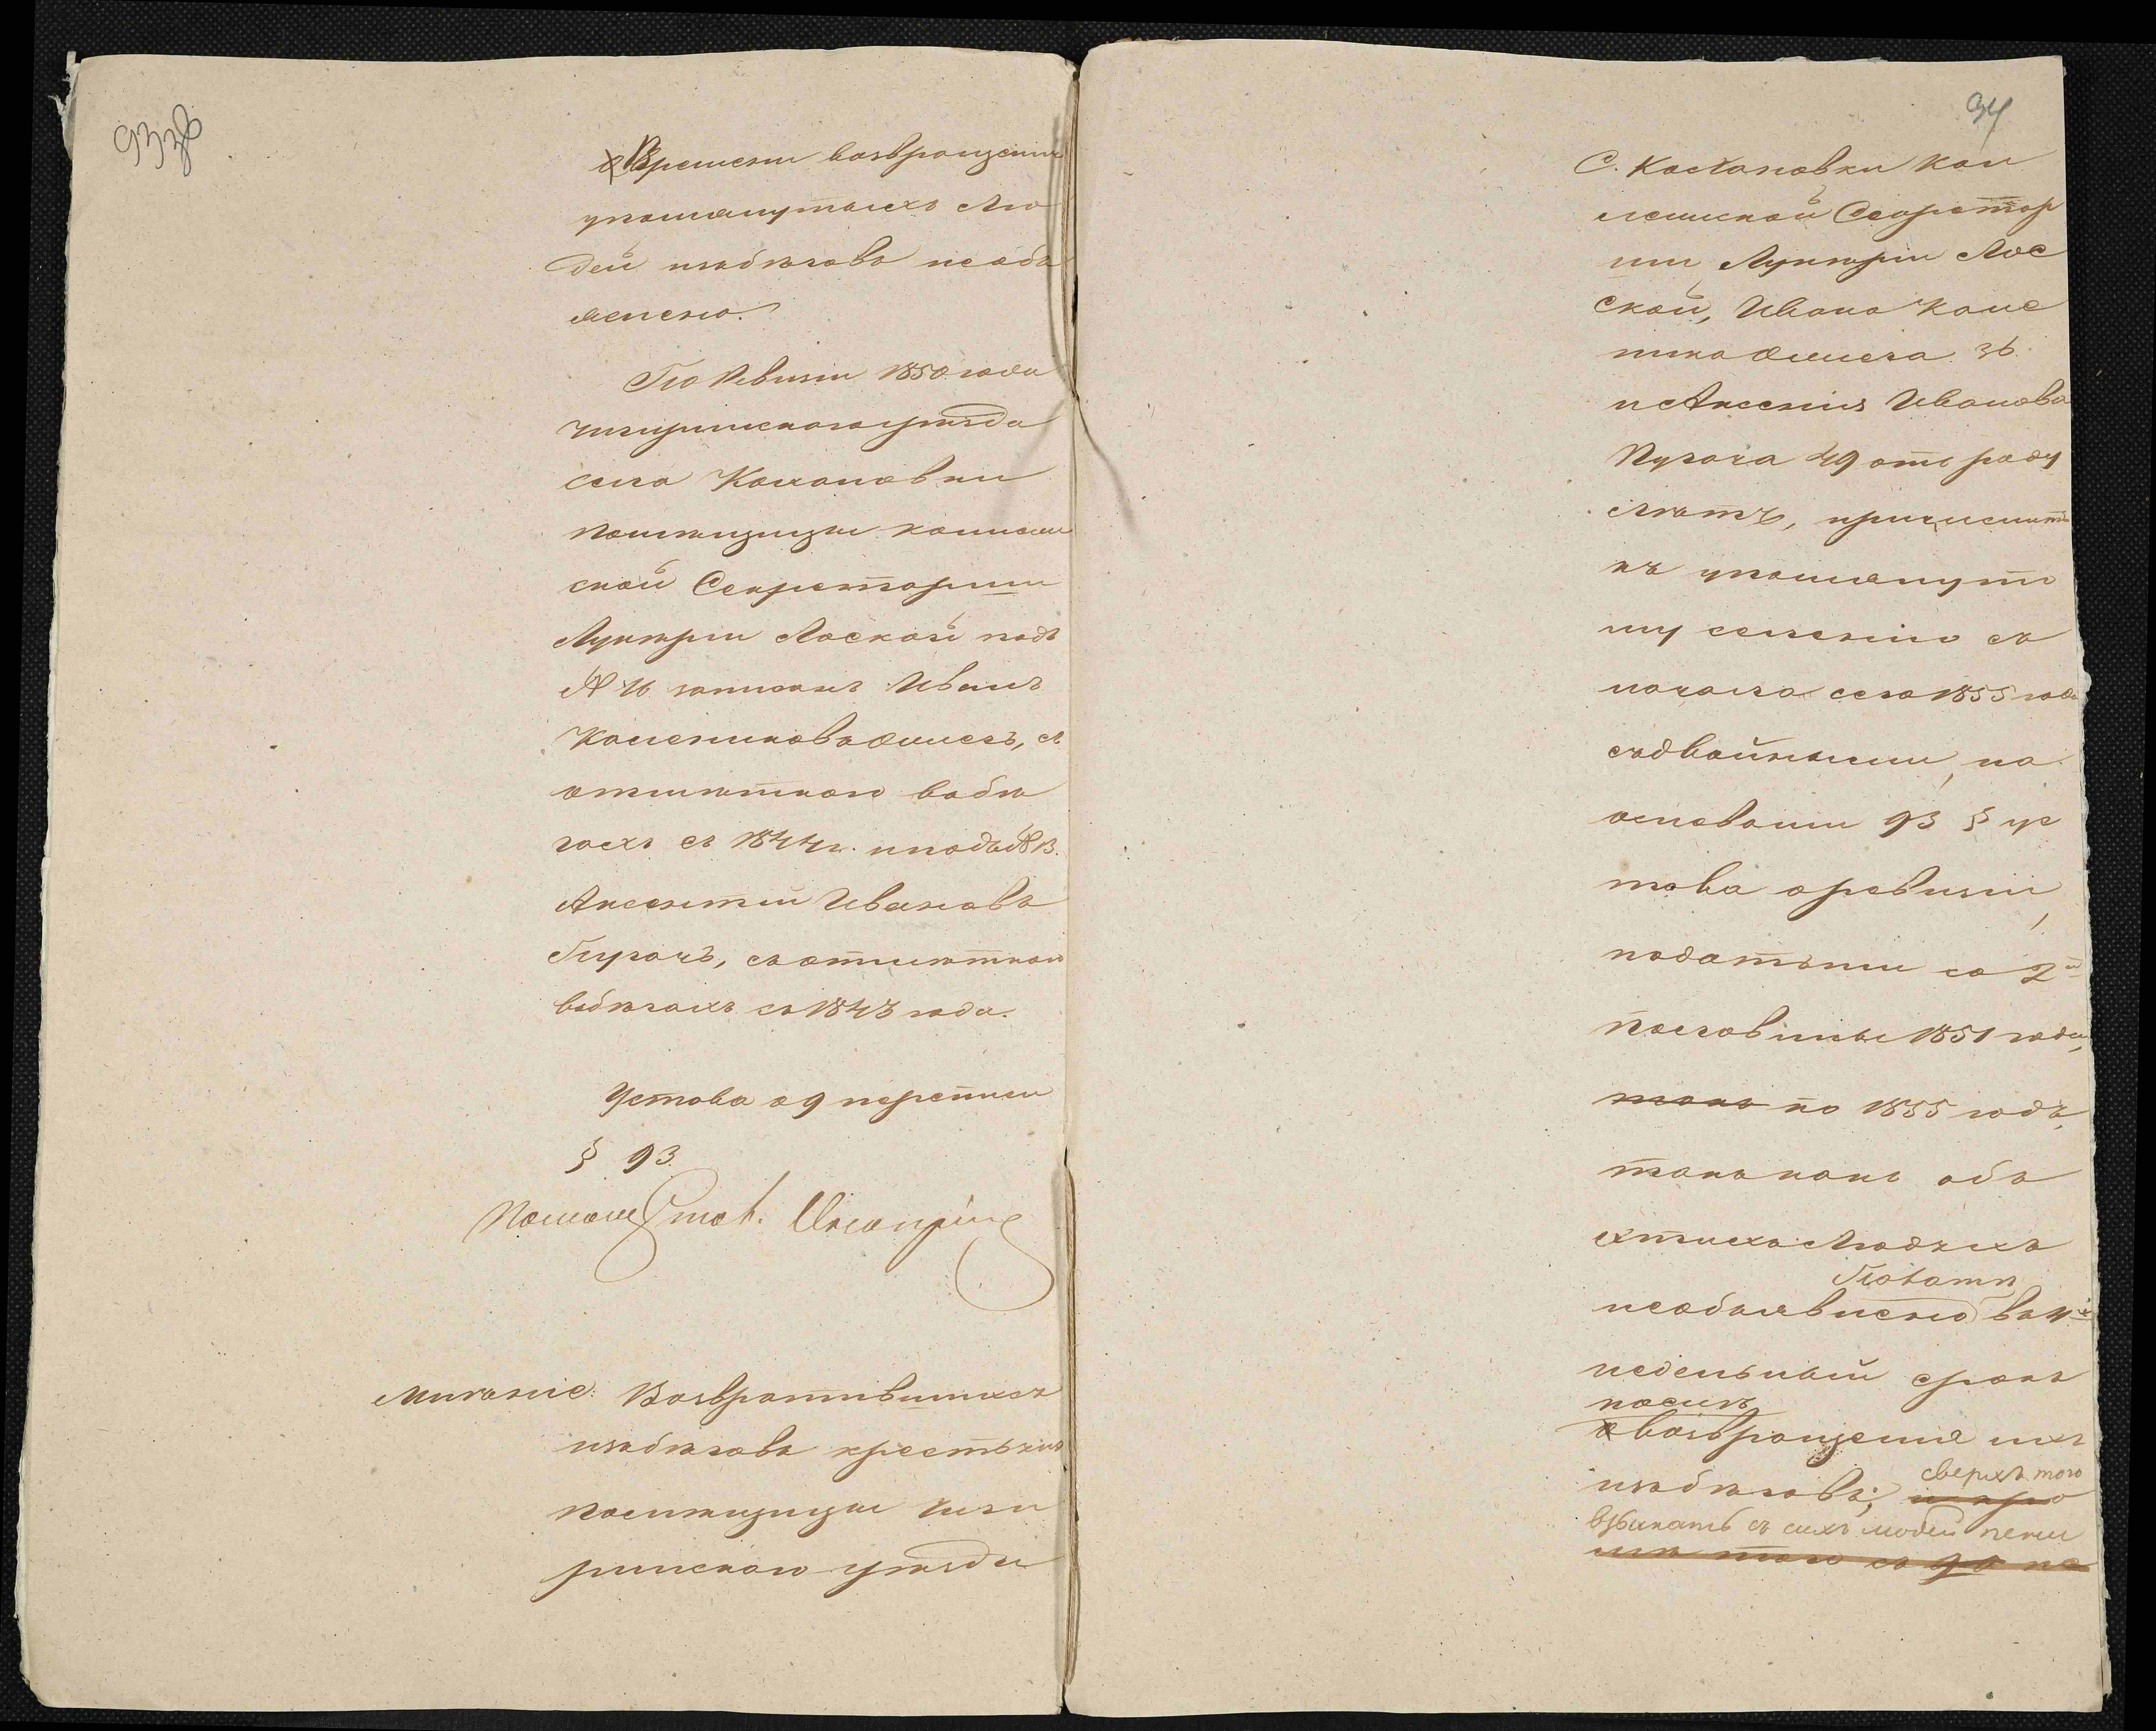 933об
Времени возвращения
упомянутыхъ Лю
дей изъбѣговъ необъ
явлено.
По Ревизіи 1850 года
чигиринскаго уѣзда
села Калановки
помѣщицы колежи
ской Секретарши
Лукеріи Лоской подъ
№ 16 записанъ Иванъ
съ
отмѣткою вобѣ
гахъ съ 1844 г. и подъ № 13.
Аксентій Ивановъ
Пугачъ, съ отмѣткою
вбѣгахъ съ 1843 года.
Устава о 9 переписи
§ 93.
Столон.
Мнѣніе: Возвратившихся
изъбѣговъ крестьянъ
помѣщицы Чиги
ринскаго уѣзда
34
С. Калановки Кол
лежской Секретар
ши Лукеріи Лос
ской, Ивана
36
и Аксенія Иванова
Пугача 49 отъ роду
лѣтъ, причислить
къ упомянуто
му селенію съ
начала сего 1855 года
съдвойными, на
основаніи 93 § ус
тава о ревизіи,
податьми со 2й
половины 1851 года,
по 1855 годъ,
такъ какъ объ
этихъ Людяхъ
необъявлено въ
недельный срокъ
послѣ
возвращенія ихъ
изъбѣговъ; сверхъ того
взыскать съ сихъ людей пени